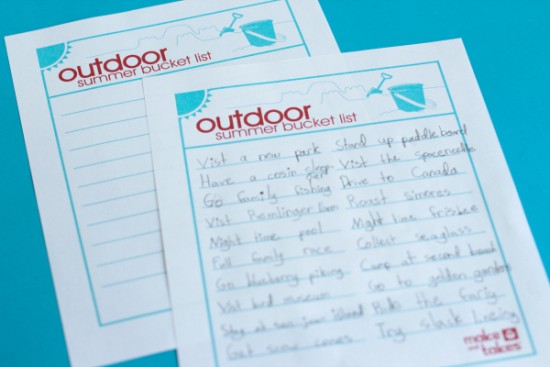 outdoor
summer bucket list
outdoor
summer bucket list
Vist a new park
Have a cosin
Go family fishing
Vist Remlinger Farm
Night time pool
Full family race
Go blueberry piking
Vist bird museum
Stay at san juan island
Get snow cones
Stand up paddle board
Vist the spaceneedle
Drive to Canada
Roast simores
Night time frisbee
Collect seaglass
Camp at second beach
Go to golden gardens
the
Try slack lineing
make and takes